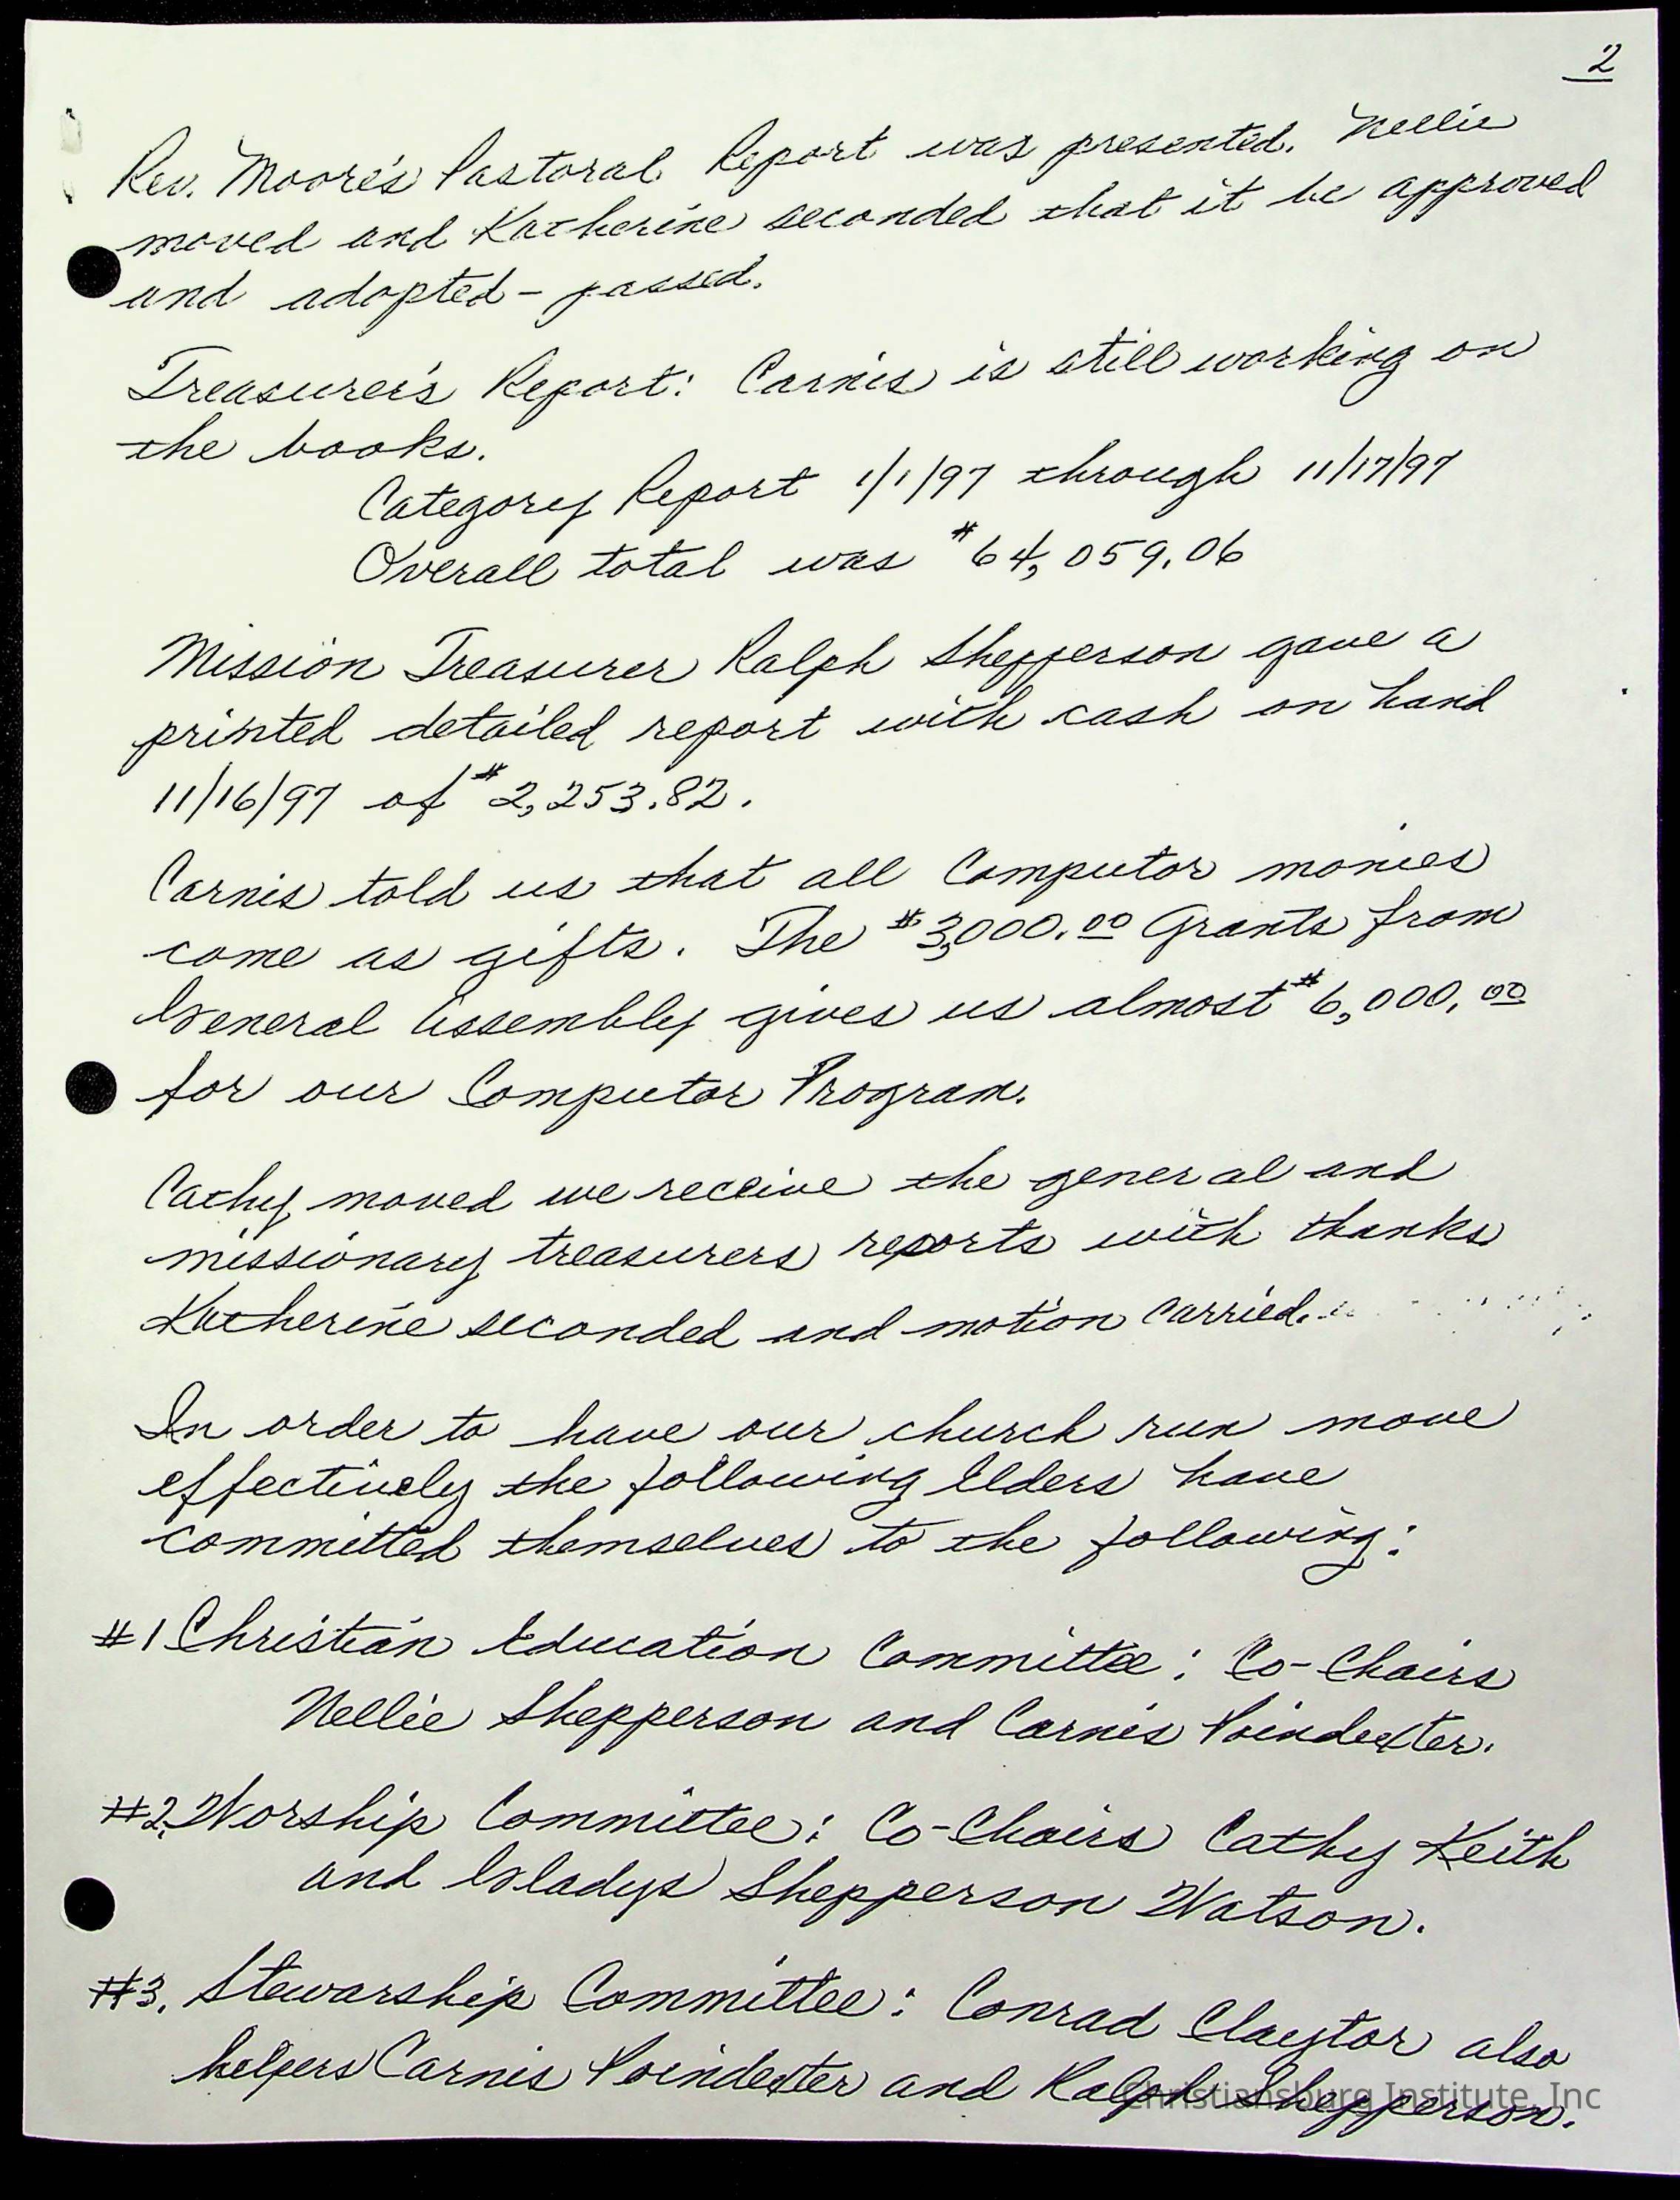 2
Rev. Moore's Pastoral Report was presented. Nellie
moved and Katherine seconded that it be approved
and adopted - passed.
Treasurer's Report: Carnis is still working on
the books.
Category Report 1/1/97 through 11/17/97
Overall total was $64,059.06
Mission Treasurer Ralph Shepperson gave a
printed detailed report with cash on hand
11/16/97 of $2,253.82.
Carnis told us that all Computor monies
come as gifts. The $3,000.00 Grants from
General Assembly gives us almost $6,000.00
for our Computor Program.
Cathy moved we receive the general and
missionary treasurers reports with thanks
Katherine seconded and motion carried.
In order to have our church run move
effectively the following Elders have
committed themselves to the following:
#1 Christian Education Committee: Co-Chairs
Nellie Shepperson and Carnis Poindexter.
#2. Worship Committee: Co-Chairs Cathy Keith
and Gladys Shepperson Watson.
#3. Stewarship Committee: Conrad Claytor also
helpers Carnis Poindexter and Ralph Shepperson.
Christiansburg Institute, Inc